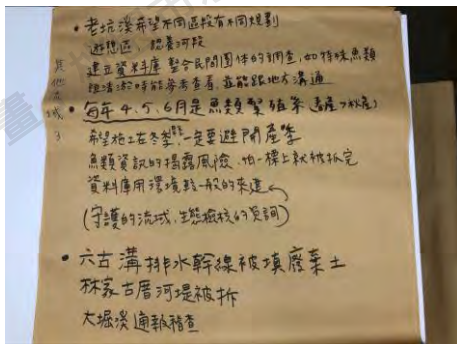 其他流域3
• 老坑溪希望不同區段有不同規劃
遊憩區、認養河段
建立資料庫 整合民間團體的調查,如特殊魚類
清淤時能參考查看,並能跟地方溝通
• 每年4、5、6月是魚類繁殖季
希望施工在冬季,一定要避開產季
魚類資訊的揭露風險,怕一標上就被抓完
資料庫用環境
(守護的流域,生態檢核的資詢)
• 六古溝排水幹線被填廢棄土
林家古厝河堤被拆
大堀溪通報稽查